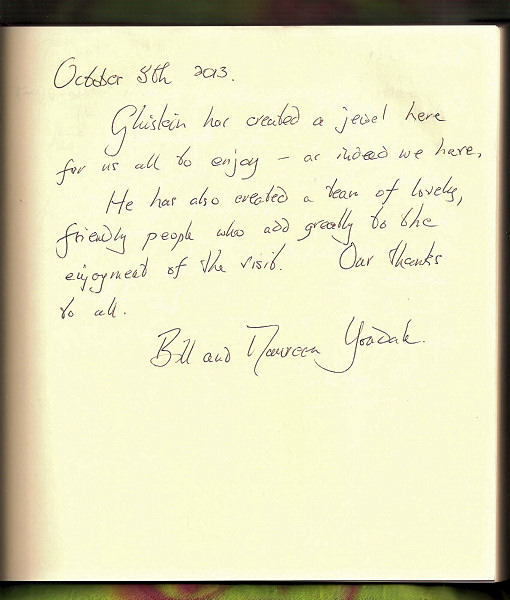 October 8th 2013.
Ghislain has created a jewel here
for us all to enjoy – as indeed we have.
He has also created a team of lovely,
friendly people who add greatly to the
enjoyment of the visit. Our thanks
to all.
Bill and Maureen